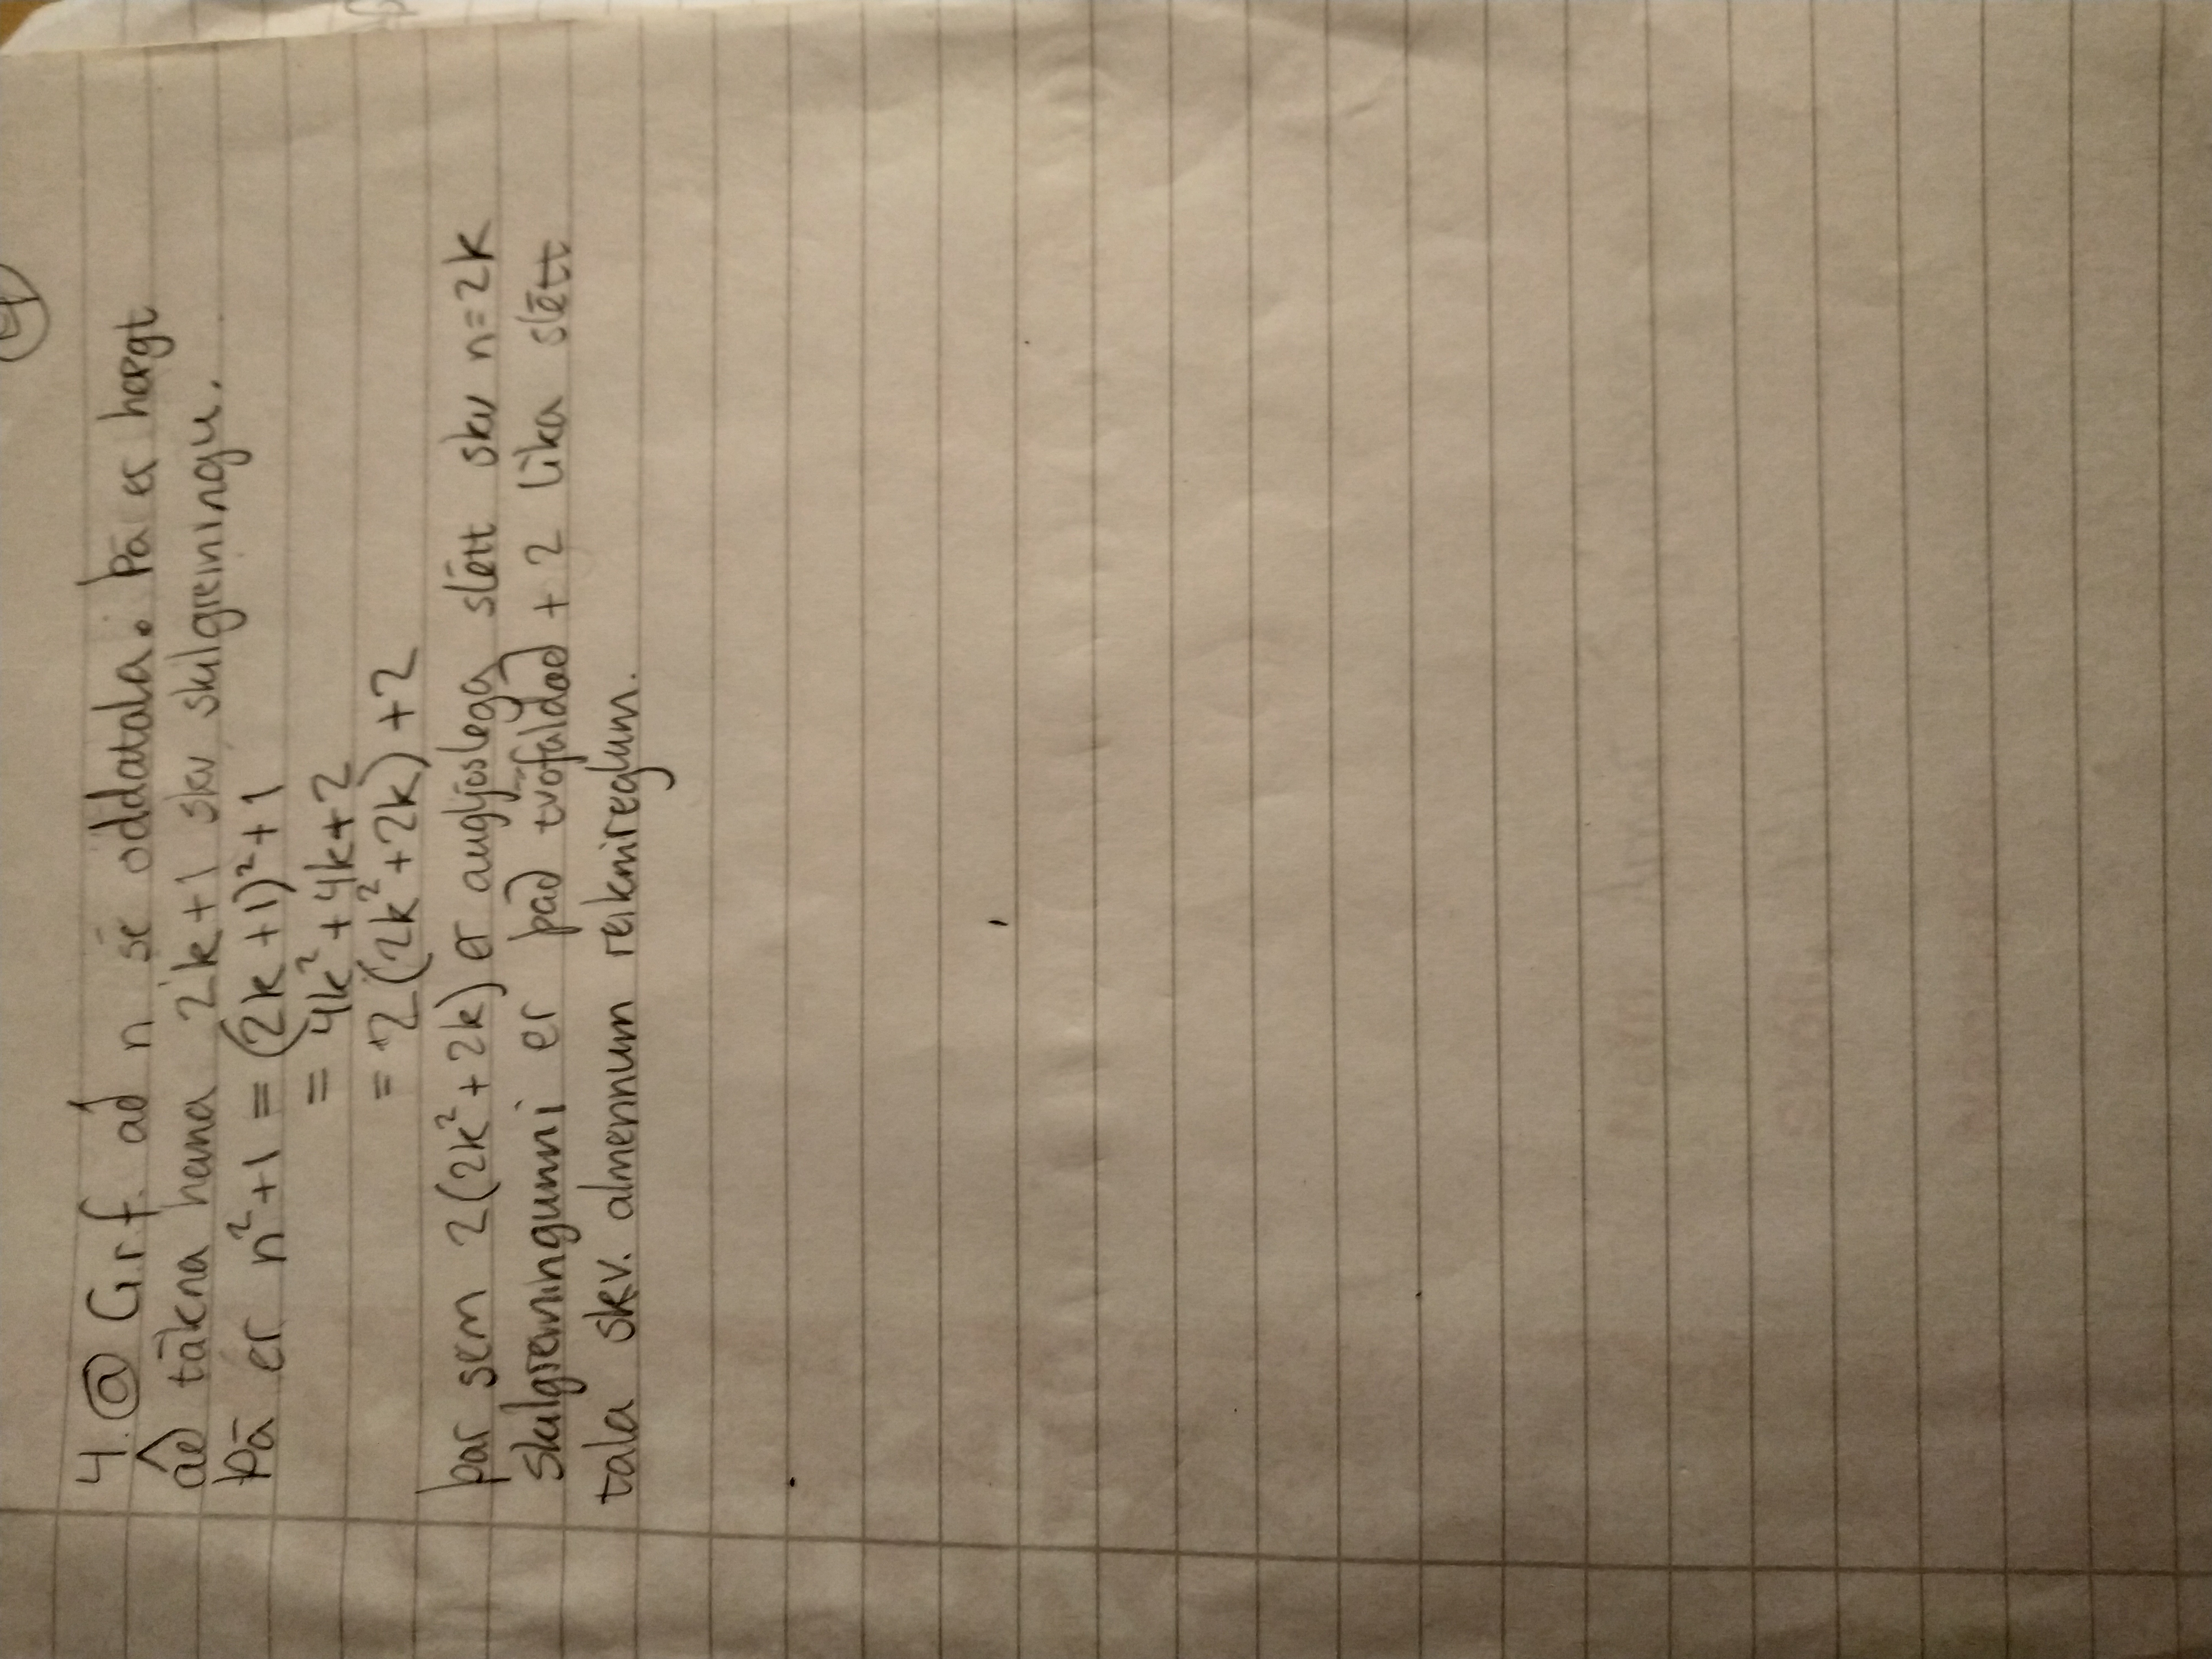 4
4. a G.r.f. að n sé oddatala. Þá er hægt
að tákna hana 2k+1 skv skilgreiningu.
Þá er n²+1 = (2k+1)²+1
= 4k²+4k+2
= 2(2k²+2k)+2
þar sem 2(2k²+2k) er augljóslega slétt skv n=2k
skilgreiningunni er það tvöfaldað + 2 líka slétt
tala skv. almennum reiknireglum.